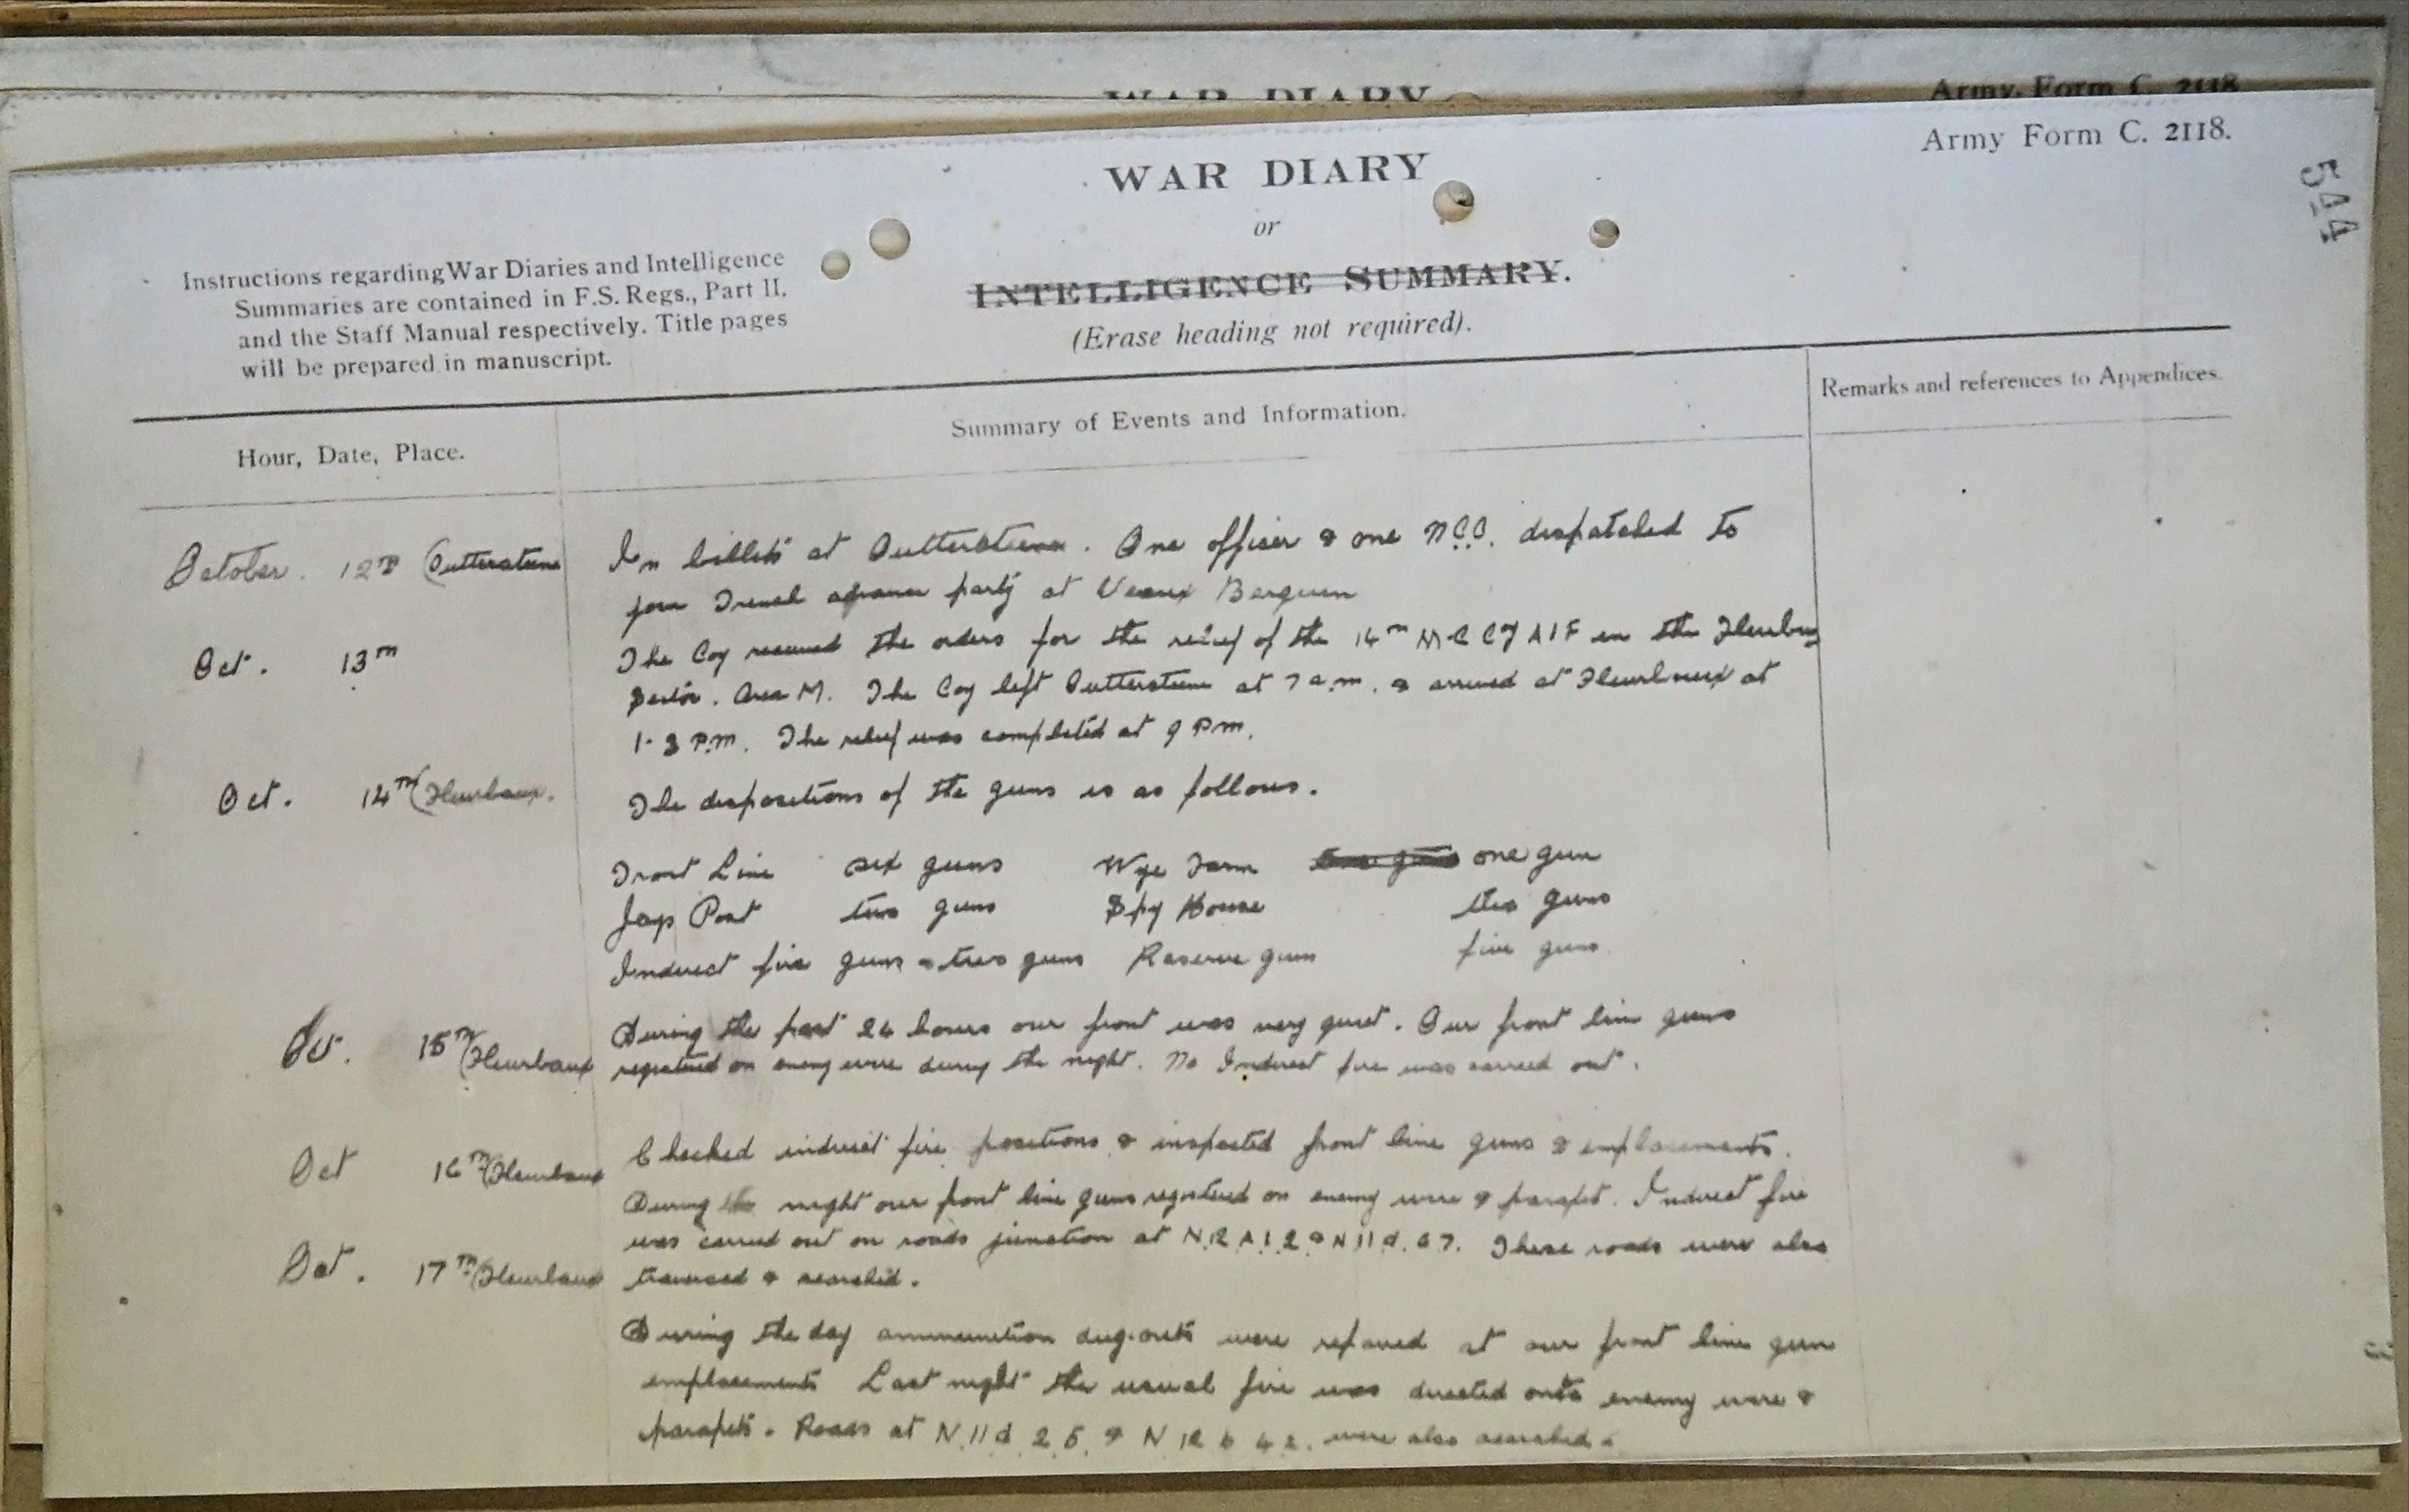 WAR DIARY
Army Form C. 2118
Army Form C. 2118.
544
WAR DIARY
or
INTELLIGENCE SUMMARY.
(Erase heading not required).
Instructions regarding War Diaries and Intelligence
Summaries are contained in F.S. Regs., Part II.
and the Staff Manual respectively. Title pages
will be prepared in manuscript.
Hour, Date, Place.
Summary of Events and Information.
Remarks and references to Appendices.
October. 12th (Outtersteene
In billets at Outtersteene. One officer & one N.C.O. dispatched to
join French advance party at Veaux Berquin
Oct. 13th
The Coy received the orders for the relief of the 14th M.C Coy AIF in the Fleurbaux
Sector. Area M. The Coy left Outtersteene at 7 a.m. & arrived at Fleurbaux at
1-3 P.m. The relief was completed at 9 Pm.
Oct. 14th (Fleurbaux.
The dispositions of the guns is as follows.
Front Line six guns Wye Farm one gun
Jays Post two guns Spy House two guns
Indirect fire guns - two guns Reserve guns five guns.
Oct. 15th (Fleurbaux
During the past 24 hours our front was very quiet. Our front line guns
registered on enemy wire during the night. No Indirect fire was carried out.
Oct 16th (Fleurbaux
Checked indirect fire positions & inspected front line guns & emplacements.
During the night our front line guns registered on enemy wire & parapet. Indirect fire
was carried out on roads junction at N.12 A 1.2 & N 11 d. 6 7. These roads were also
Oct. 17th (Fleurbaux
traversed & searched.
During the day ammunition dug-outs were repaired at our front line gun
emplacements Last night the usual fire was directed onto enemy wire &
parapets. Roads at N.11 d 2 5. & N 12 b 4 2. were also searched.